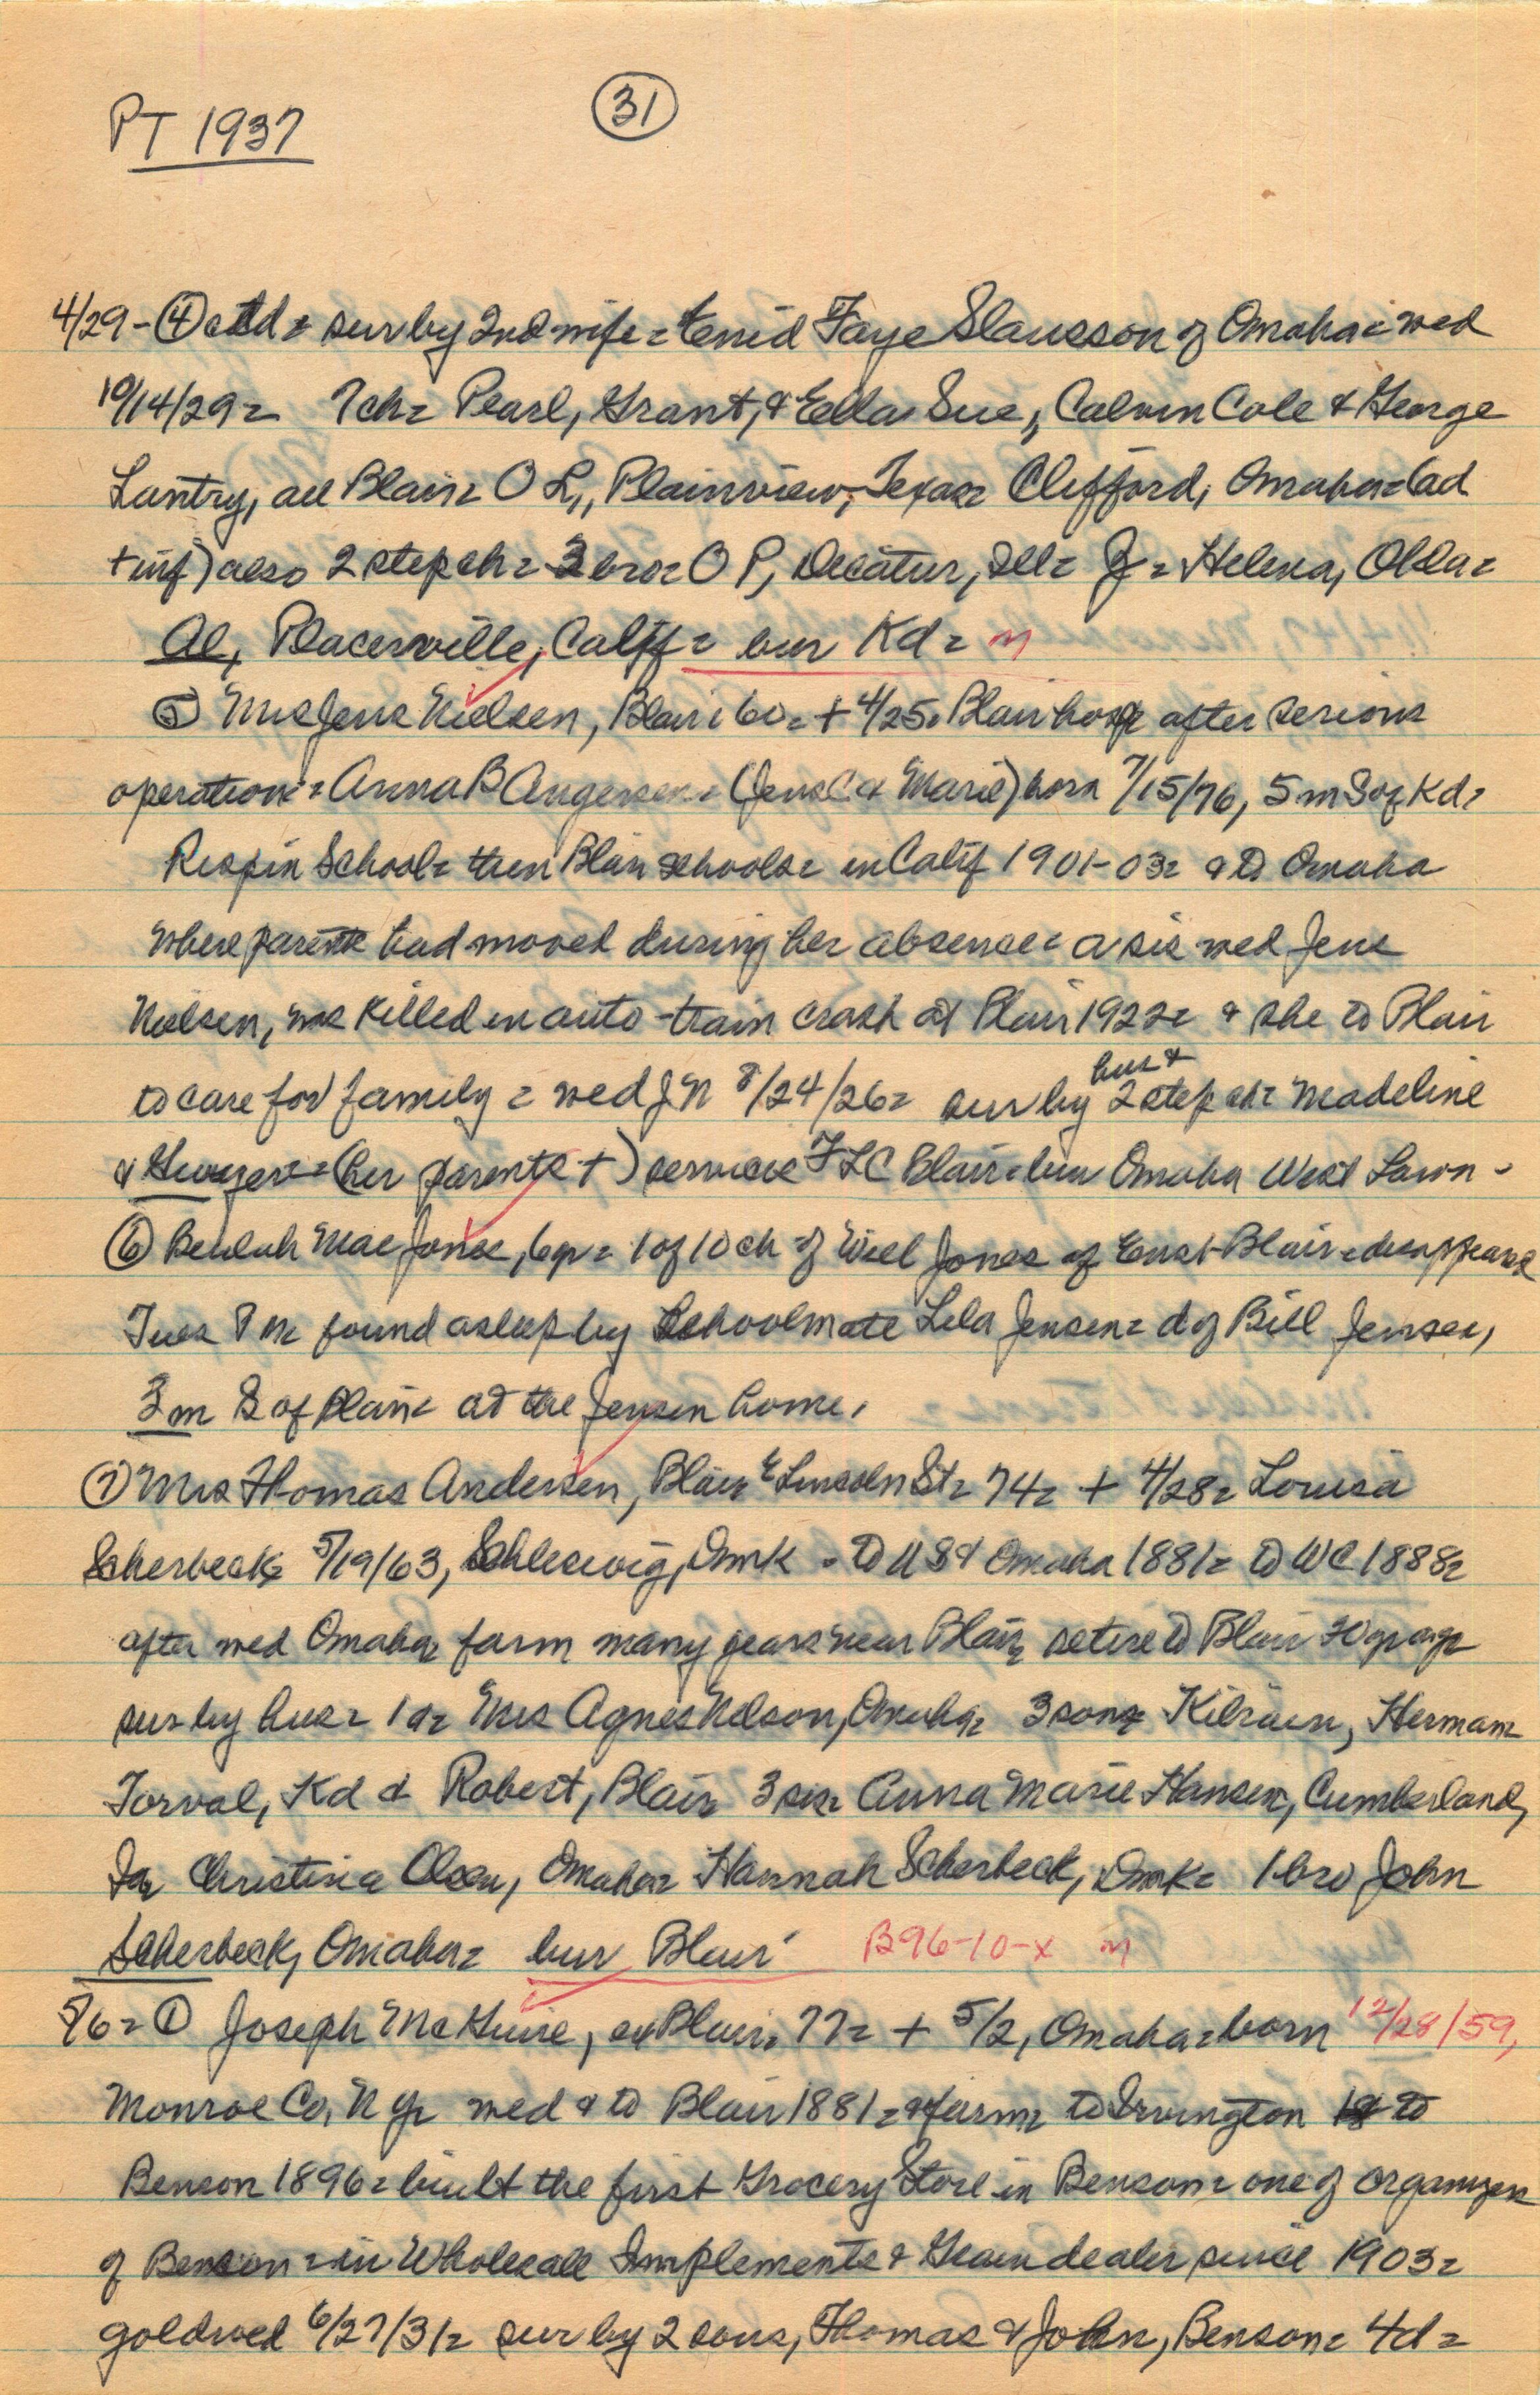 PT 1937
31
4/29 - ④ ctd = sur by 2nd wife = Enid Faye Slausson of Omaha = wed
10/14/29 = 7 ch = Pearl, Grant, & Ella Sue, Calvin Cole & George
Lantry, all Blair = O L, Plainview, Texas = Clifford, Omaha = (ad
+ inf) also 2 step ch = 3 bro = O P, Decatur, Ill = J = Helena, Okla =
Al, Placerville, Calif = bur Kd = m
⑤ Mrs Jens Nielsen, Blair = 60 = + 4/25 = Blair hosp after serious
operation = Anna B Angersen = (Jens C & Marie) born 7/15/76, 5 m S of Kd =
Rispin School = then Blair schools = in Calif 1901-03 = & to Omaha
where parents had moved during her absence = a sis wed Jens
Nielsen, was killed in auto-train crash at Blair 1922 = & she to Blair
to care for family = wed J N 8/24/26 = sur by hus & 2 step ch = Madeline
& = (her parents +) services F L C Blair = bur Omaha West Lawn -
⑥ Beulah Mae Jones, 6 yr = 1 of 10 ch of Will Jones of East Blair = disappeared
Tues P M = found asleep by schoolmate Lila Jensen = d of Bill Jensen,
3 m S of Blair = at the Jensen home,
⑦ Mrs Thomas Andersen, Blair E Lincoln St = 74 = + 4/28 = Louisa
Scherbeck 5/19/63, Schleswig, Dmk - to US & Omaha 1881 = to WC 1888 =
after wed Omaha = farm many years near Blair = retire to Blair 20 yr ago =
sur by hus = 1 d = Mrs Agnes Nelson, Omaha = 3 sons Kilrain, Herman =
Torval, Kd & Robert, Blair = 3 sis = Anna Marie Hansen, Cumberland,
Ia = Christina Olsen, Omaha = Hannah Scherbeck, Dmk = 1 bro John
Scherbeck, Omaha = bur Blair B96-10-x m
5/6 = ① Joseph McGuire, ex Blair = 77 = + 5/2, Omaha = born 12/28/59,
Monroe Co, N Y = wed & to Blair 1881 = farm = to Irvington to
Benson 1896 = built the first Grocery Store in Benson = one of organizers
of Benson = in Wholesale Implements & Grain dealer since 1903 =
gold wed 6/27/31 = sur by 2 sons, Thomas & John, Benson = 4 d =